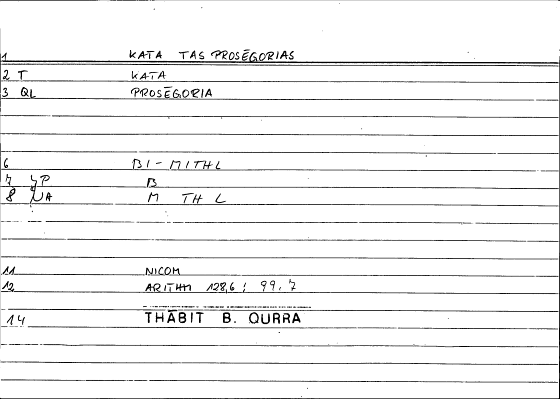 1 KATA TAS PROSĒGORIAS
2 T KATA
3 QL PROSĒGORIA
6 BI-MITHL
7 JP B
8 NA M TH L
11 NICOM
12 ARITHM 128,6 : 99.7
14 THĀBIT B. QURRA